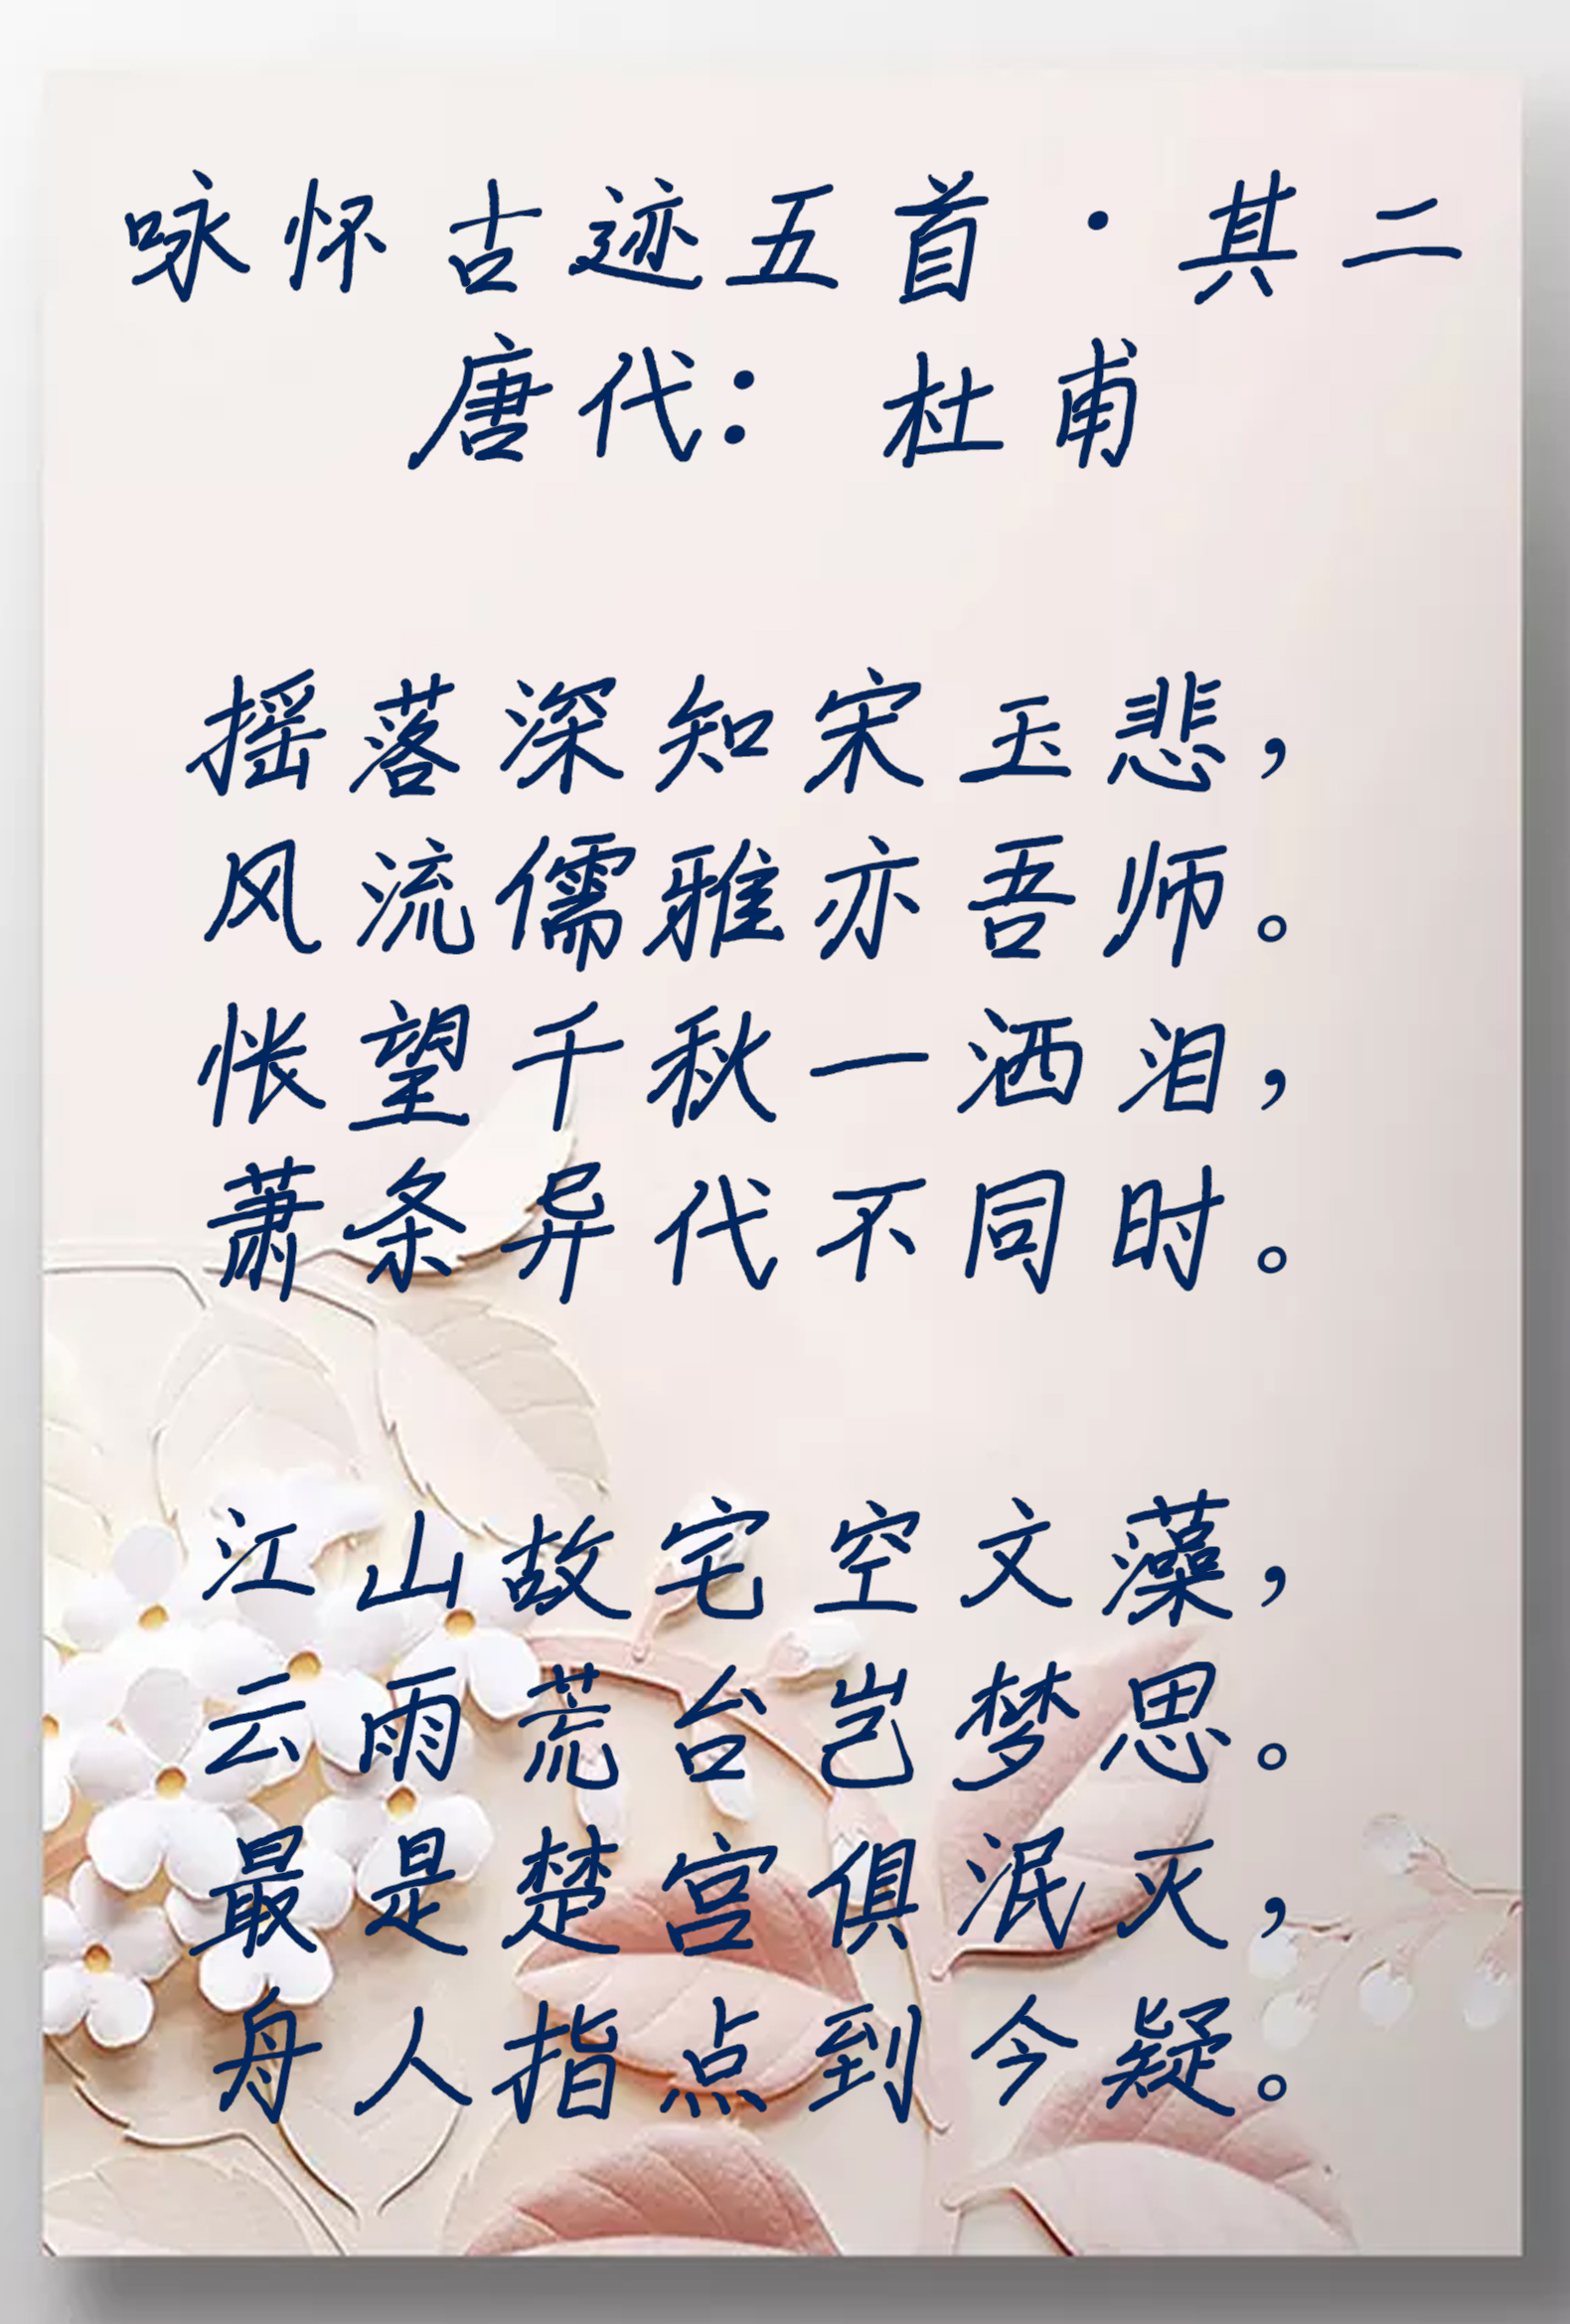 咏怀古迹五首·其二
唐代：杜甫
摇落深知宋玉悲，
风流儒雅亦吾师。
怅望千秋一洒泪，
萧条异代不同时。
江山故宅空文藻，
云雨荒台岂梦思。
最是楚宫俱泯灭，
舟人指点到今疑。